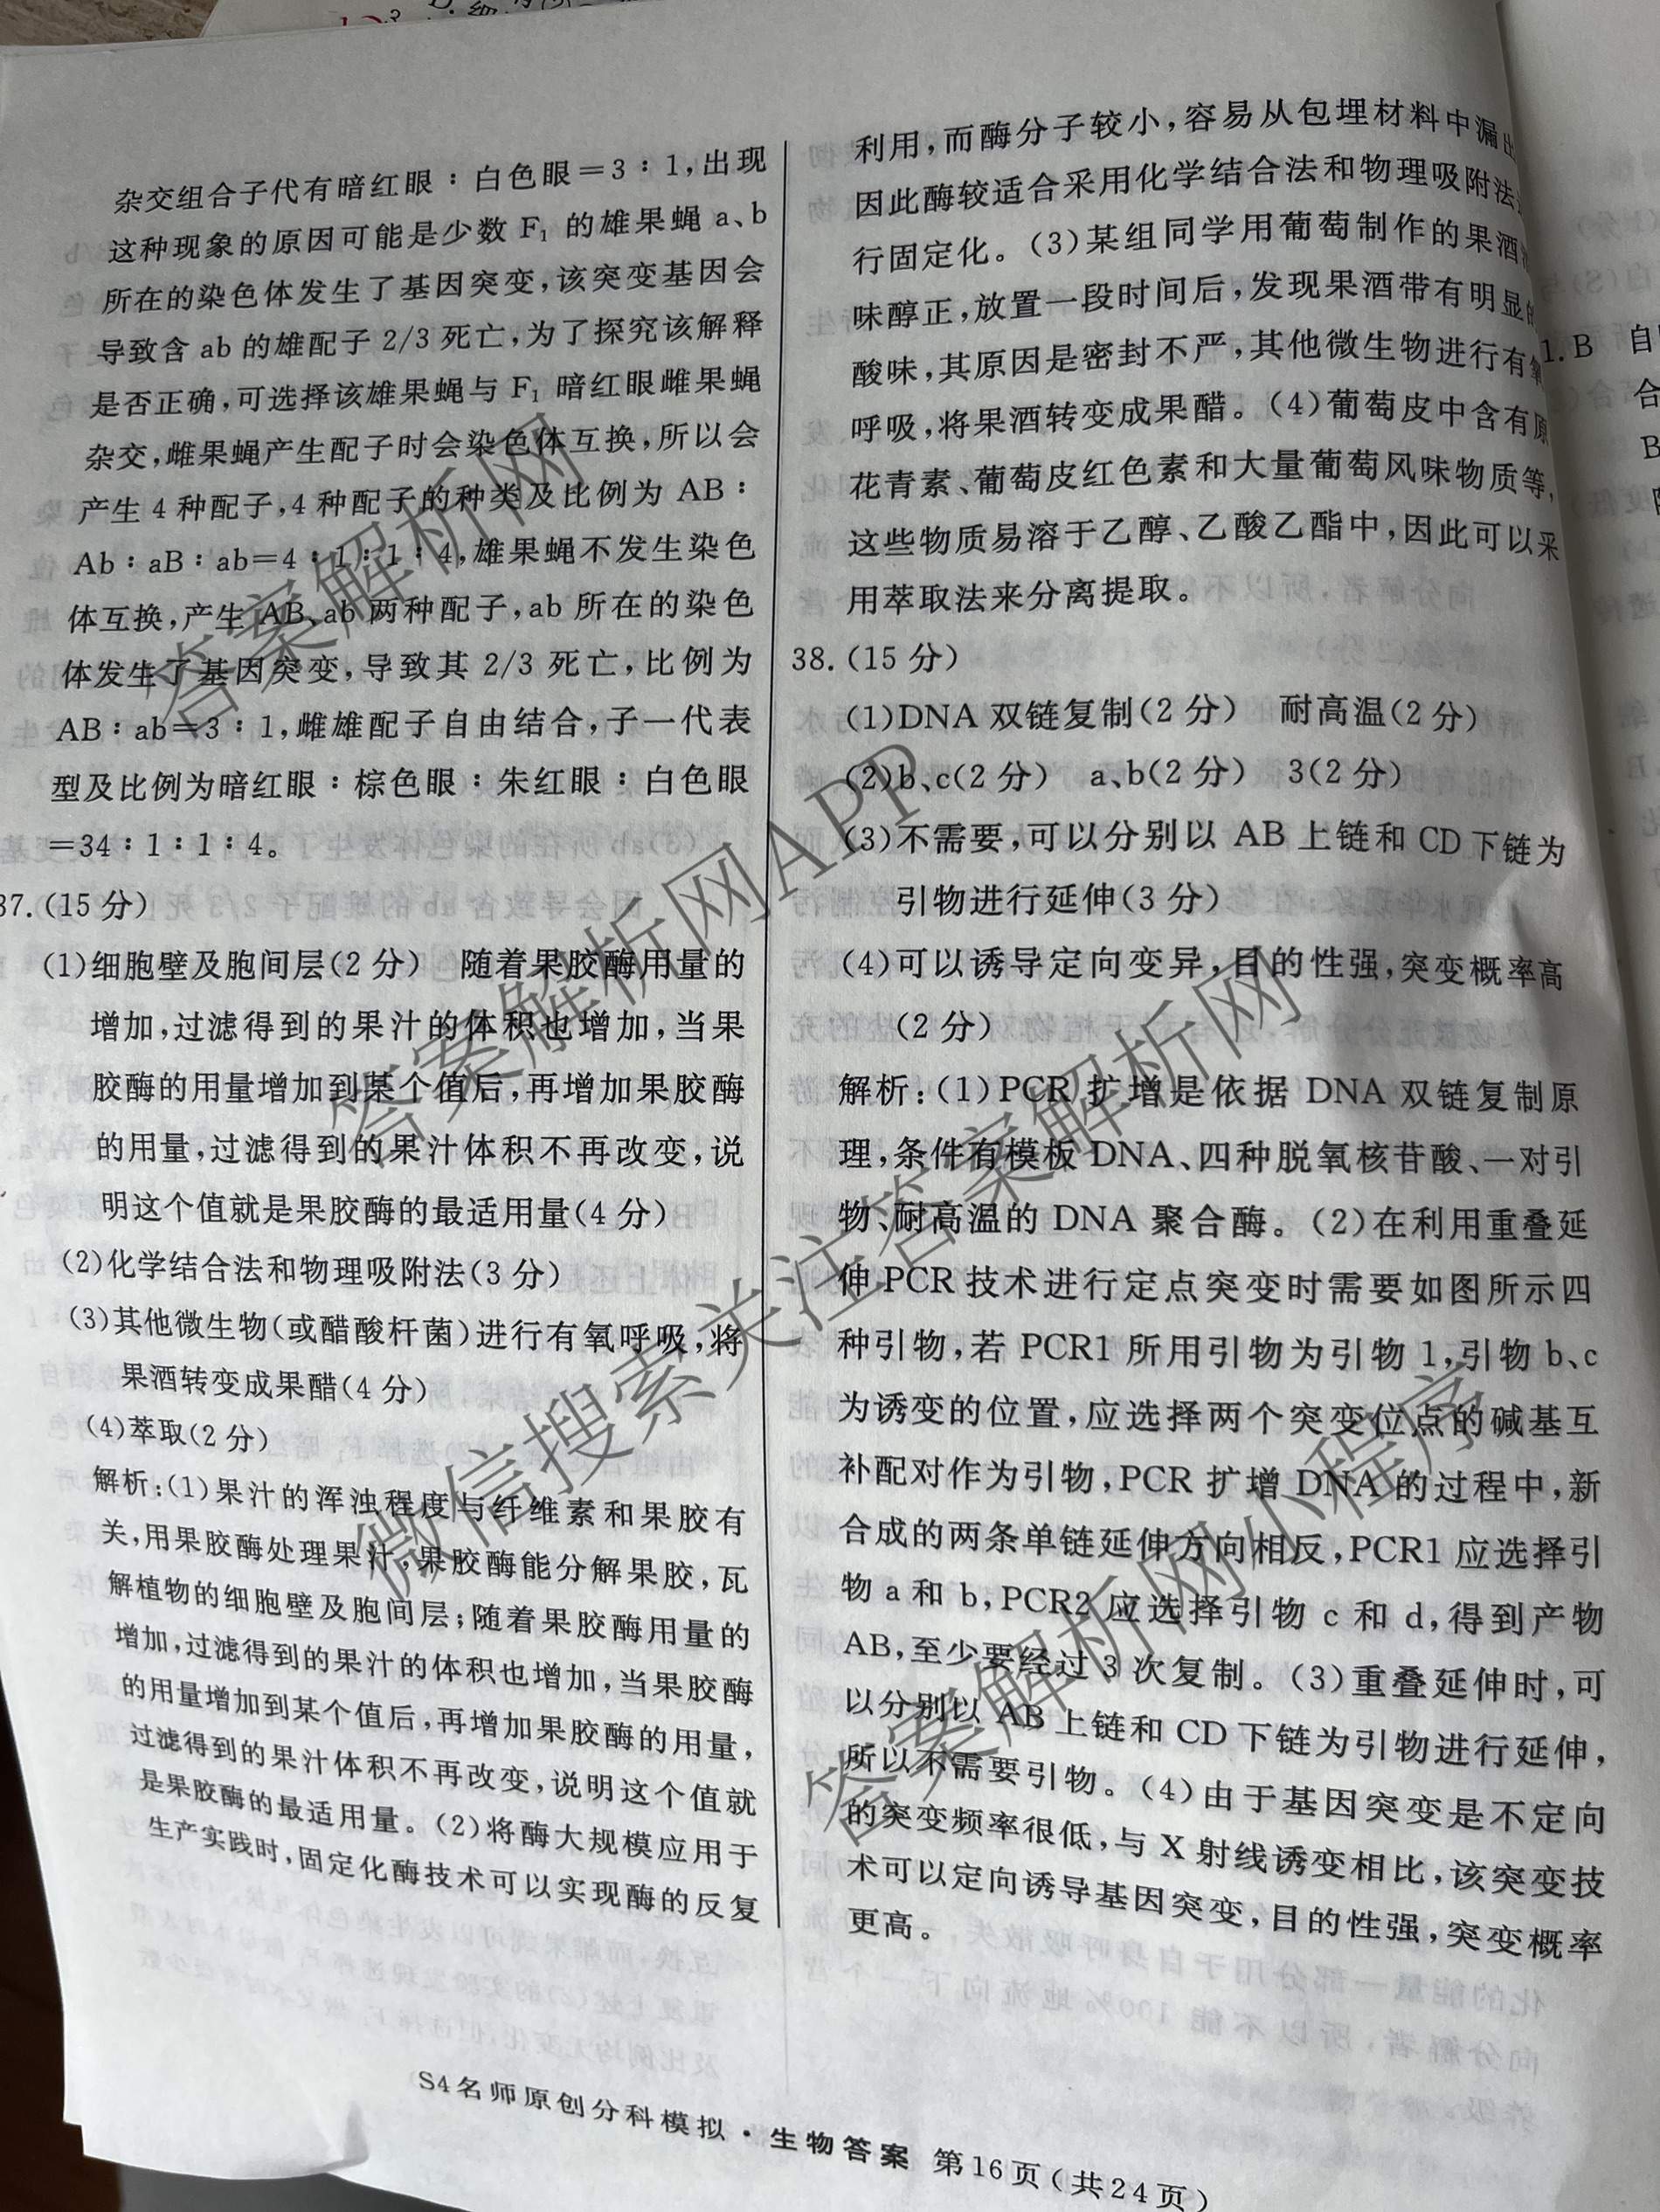 杂交组合子代有暗红眼∶白色眼＝3∶1,出现
这种现象的原因可能是少数 F₁ 的雄果蝇 a、b
所在的染色体发生了基因突变,该突变基因会
导致含 ab 的雄配子 2/3 死亡,为了探究该解释
是否正确,可选择该雄果蝇与 F₁ 暗红眼雌果蝇
杂交,雌果蝇产生配子时会染色体互换,所以会
产生 4 种配子,4 种配子的种类及比例为 AB∶
Ab∶aB∶ab＝4∶1∶1∶4,雄果蝇不发生染色
体互换,产生 AB、ab 两种配子,ab 所在的染色
体发生了基因突变,导致其 2/3 死亡,比例为
AB∶ab＝3∶1,雌雄配子自由结合,子一代表
型及比例为暗红眼∶棕色眼∶朱红眼∶白色眼
＝34∶1∶1∶4。
37.(15 分)
(1)细胞壁及胞间层(2 分) 随着果胶酶用量的
增加,过滤得到的果汁的体积也增加,当果
胶酶的用量增加到某个值后,再增加果胶酶
的用量,过滤得到的果汁体积不再改变,说
明这个值就是果胶酶的最适用量(4 分)
(2)化学结合法和物理吸附法(3 分)
(3)其他微生物(或醋酸杆菌)进行有氧呼吸,将
果酒转变成果醋(4 分)
(4)萃取(2 分)
解析:(1)果汁的浑浊程度与纤维素和果胶有
关,用果胶酶处理果汁,果胶酶能分解果胶,瓦
解植物的细胞壁及胞间层;随着果胶酶用量的
增加,过滤得到的果汁的体积也增加,当果胶酶
的用量增加到某个值后,再增加果胶酶的用量,
过滤得到的果汁体积不再改变,说明这个值就
是果胶酶的最适用量。(2)将酶大规模应用于
生产实践时,固定化酶技术可以实现酶的反复
利用,而酶分子较小,容易从包埋材料中漏出
因此酶较适合采用化学结合法和物理吸附法
行固定化。(3)某组同学用葡萄制作的果酒
味醇正,放置一段时间后,发现果酒带有明显的
酸味,其原因是密封不严,其他微生物进行有氧
呼吸,将果酒转变成果醋。(4)葡萄皮中含有原
花青素、葡萄皮红色素和大量葡萄风味物质等,
这些物质易溶于乙醇、乙酸乙酯中,因此可以采
用萃取法来分离提取。
38.(15 分)
(1)DNA 双链复制(2 分) 耐高温(2 分)
(2)b、c(2 分) a、b(2 分) 3(2 分)
(3)不需要,可以分别以 AB 上链和 CD 下链为
引物进行延伸(3 分)
(4)可以诱导定向变异,目的性强,突变概率高
(2 分)
解析:(1)PCR 扩增是依据 DNA 双链复制原
理,条件有模板 DNA、四种脱氧核苷酸、一对引
物、耐高温的 DNA 聚合酶。(2)在利用重叠延
伸 PCR 技术进行定点突变时需要如图所示四
种引物,若 PCR1 所用引物为引物 1,引物 b、c
为诱变的位置,应选择两个突变位点的碱基互
补配对作为引物,PCR 扩增 DNA 的过程中,新
合成的两条单链延伸方向相反,PCR1 应选择引
物 a 和 b,PCR2 应选择引物 c 和 d,得到产物
AB,至少要经过 3 次复制。(3)重叠延伸时,可
以分别以 AB 上链和 CD 下链为引物进行延伸,
所以不需要引物。(4)由于基因突变是不定向
的突变频率很低,与 X 射线诱变相比,该突变技
术可以定向诱导基因突变,目的性强,突变概率
更高。
1. B 自
合
B
S4名师原创分科模拟·生物答案 第16页(共24页)
答案解析网
答案解析网APP
微信搜索关注答案解析网
答案解析网小程序